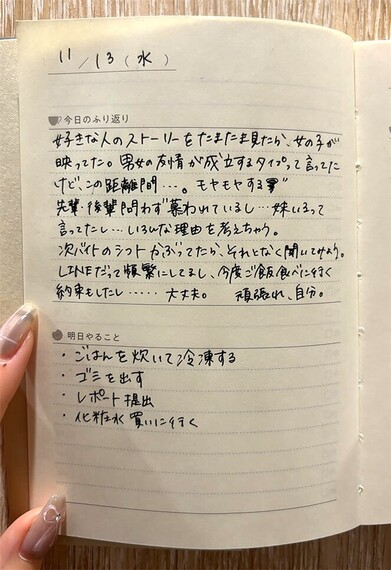 11/13(水)
今日のふり返り
好きな人のストーリーをたまたま見たら、女の子が
映ってた。男女の友情が成立するタイプって言ってた
けど、この距離間…。モヤモヤする
先輩・後輩問わず慕われているし…妹いるって
言ってたし…いろいろな理由を考えちゃう。
次バイトのシフトかぶってたら、それとなく聞いてみよう。
LINEだって頻繁にしてるし、今度ご飯食べに行く
約束もしたし……大丈夫。 頑張れ、自分。
明日やること
・ごはんを炊いて冷凍する
・ゴミを出す
・レポート提出
・化粧水買いに行く